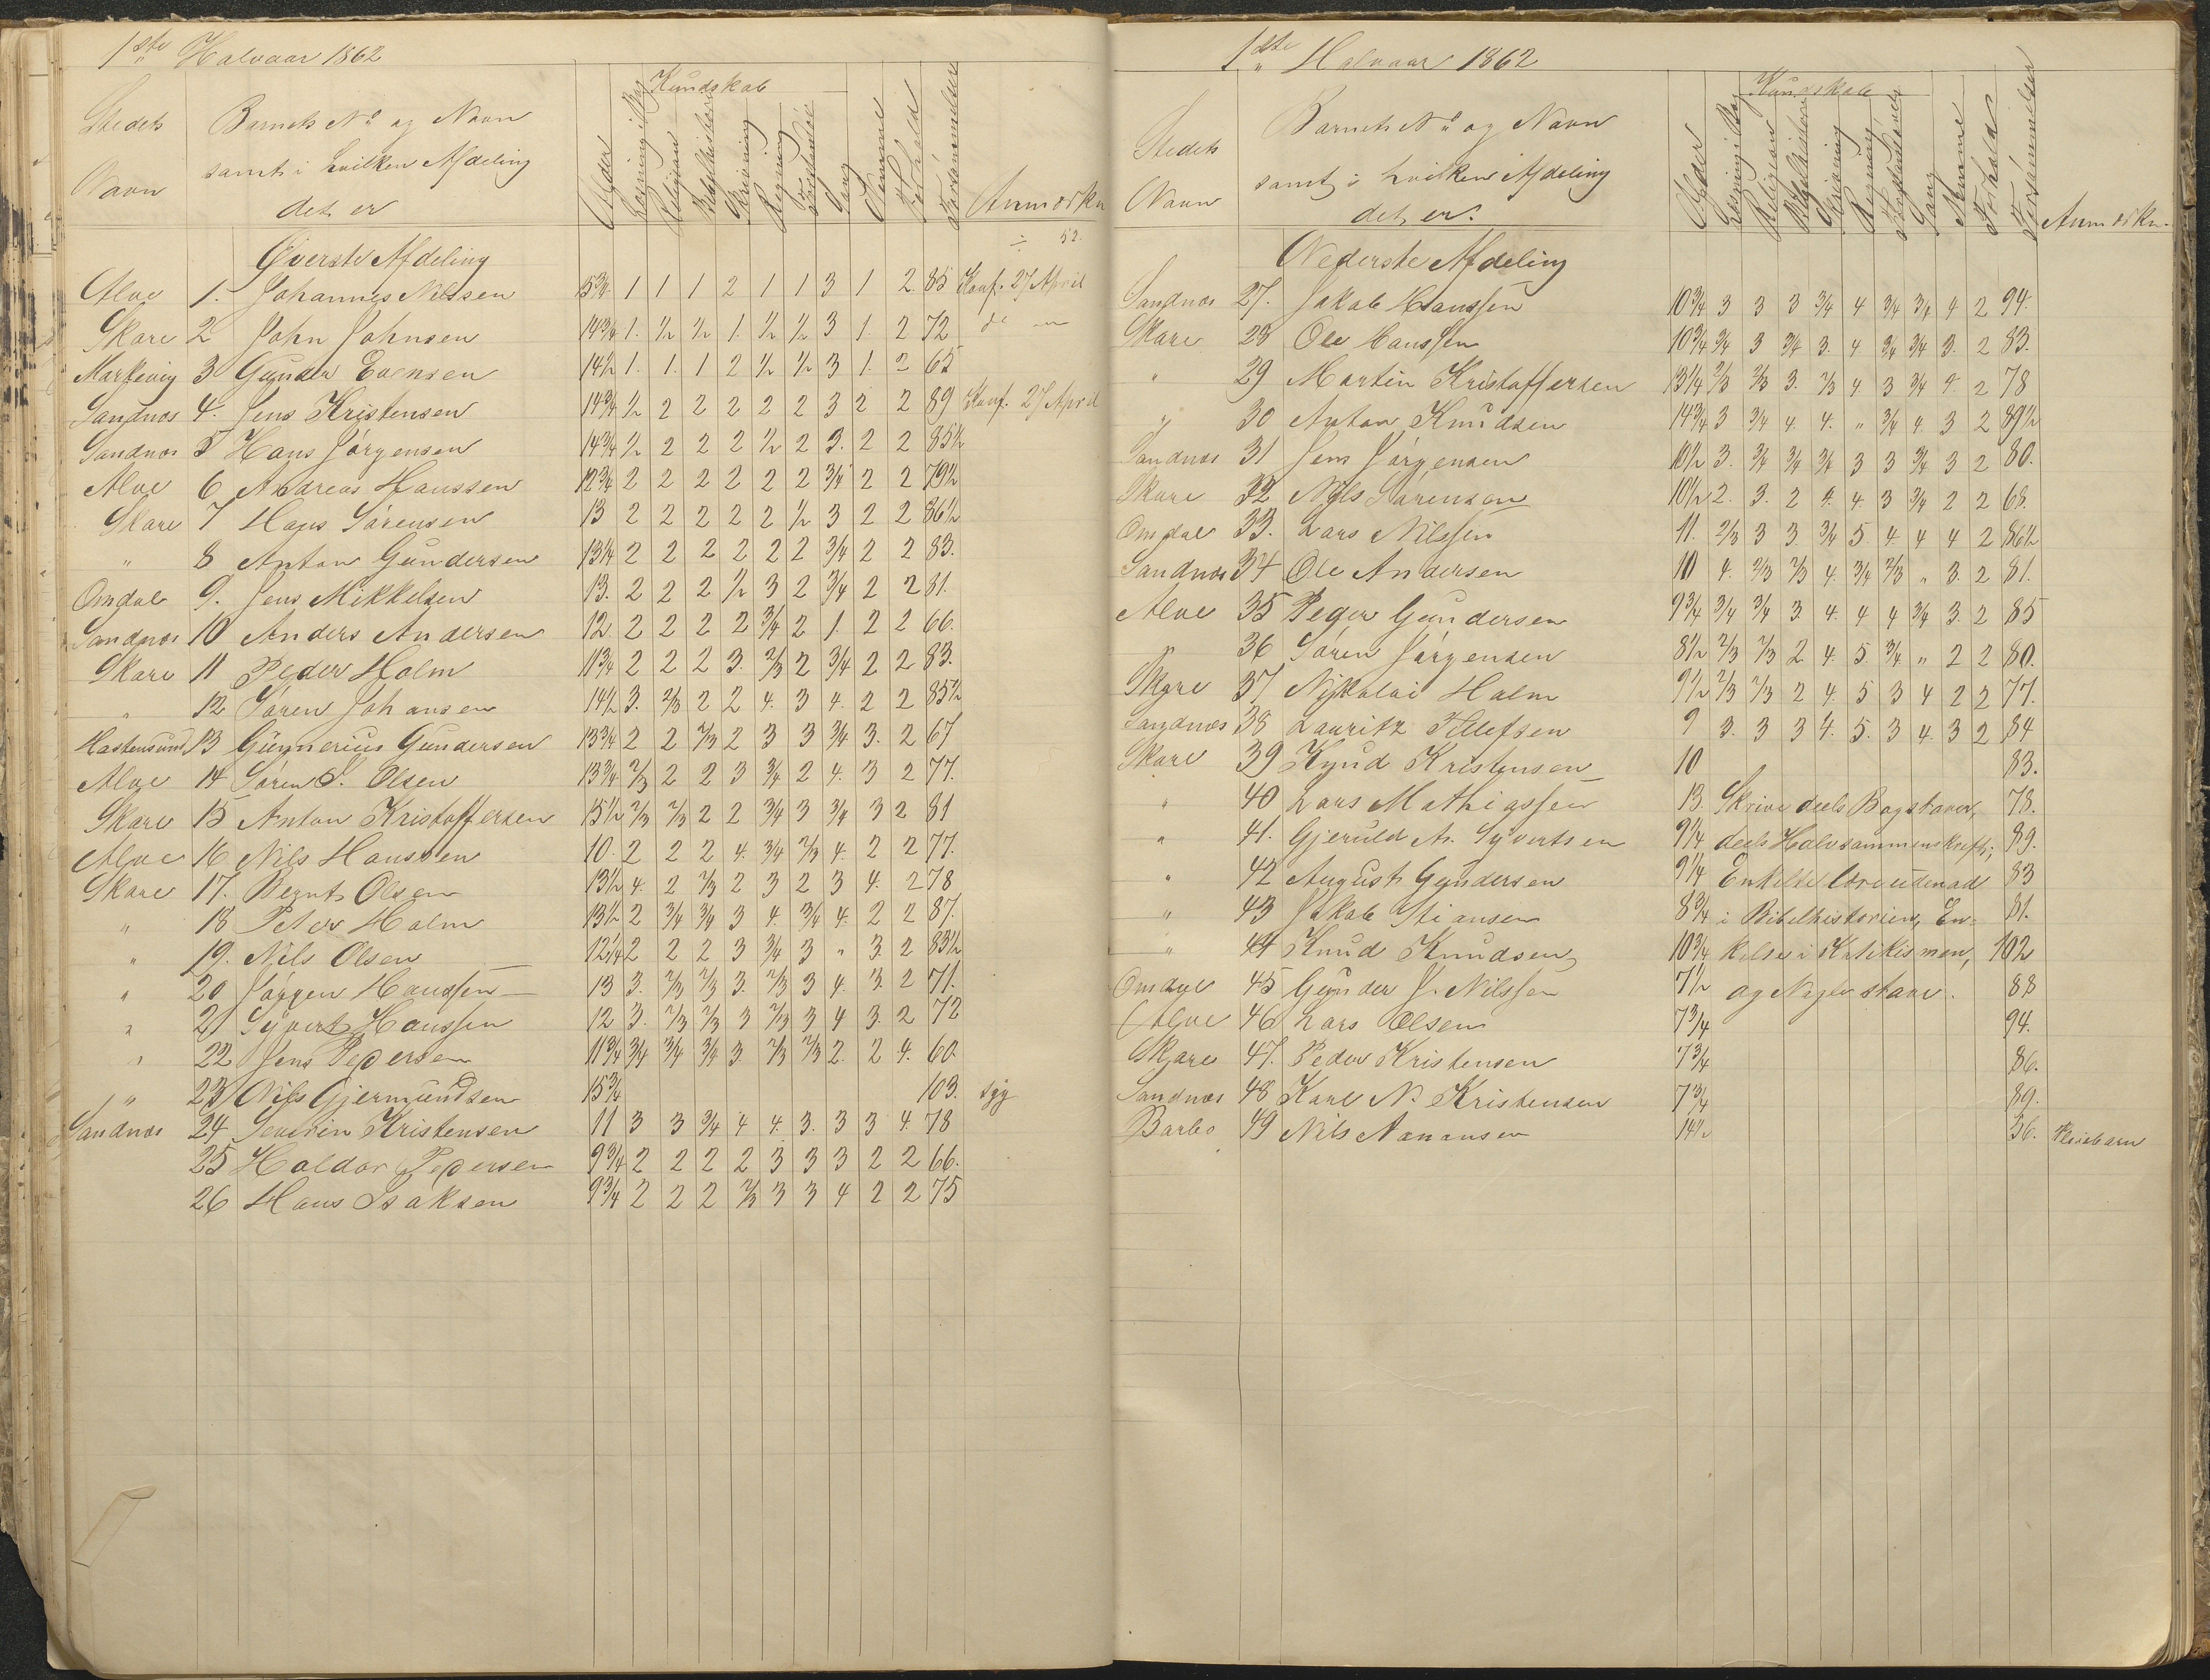 1ste Halvaar 1862
Stedets Navn
Barnets No og Navn samt i hvilken Afdeling det er
Alder
Kundskab
Læsning i Bog
Religion
Bibelhistorie
Skrivning
Regning
Sang
Nemme
Forhold
Forsømmelser
Anmærkn
Øverste Afdeling ÷ 52.
Alve 1. Johannes Nilssen 15 3/4 1 1 1 2 1 1 3 1 2 85 Konf. 27 April
Skare 2 John Johnsen 14 3/4 1. 1/2 1/2 1. 1/2 1/2 3 1. 2 72 do "
3 Gunder Evensen 14 1/2 1. 1. 1 2 1/2 1/2 3 1. 2 65
Sandnæs 4. Jens Kristensen 14 3/4 1/2 2 2 2 2 2 3 2 2 89 Konf. 27 April
Sandnæs 5 Hans Jörgensen 14 3/4 1/2 2 2 2 1/2 2 3. 2 2 85 1/2
Alve 6 Andreas Hanssen 12 3/4 2 2 2 2 2 2 3/4 2 2 79 1/2
Skare 7 Hans Sörensen 13 2 2 2 2 2 1/2 3 2 2 86 1/2
" 8 Anton Gundersen 13 1/4 2 2 2 2 2 2 3/4 2 2 83.
Omdal 9. Jens Mikkelsen 13. 2 2 2 1/2 3 2 3/4 2 2 81.
Sandnæs 10 Anders Andersen 12 2 2 2 2 3/4 2 1. 2 2 66.
Skare 11 Peder Holm 11 3/4 2 2 2 3. 2/3 2 3/4 2 2 83.
" 12 Sören Johansen 14 1/2 3. 2/3 2 2 4. 3 4. 2 2 85 1/2
Hastensund 13 Gunnerius Gundersen 13 3/4 2 2 2/3 2 3 3 3/4 3. 2 67
Alve 14 Sören S. Olsen 13 3/4 2/3 2 2 3 3/4 2 4. 3 2 77.
Skare 15 Anton Kristoffersen 15 1/2 2/3 2/3 2 2 3/4 3 3/4 3 2 81
Alve 16 Nils Hanssen 10. 2 2 2 4. 3/4 2/3 4. 2 2 77.
Skare 17. Bernt Olsen 13 1/2 4. 2 2/3 2 3 2 3 4. 2 78
" 18 Peter Holm 13 1/2 2 3/4 3/4 3 4. 3/4 4. 2 2 87.
" 19. Nils Olsen 12 1/4 2 2 2 3 3/4 3 " 3. 2 83 1/2
" 20 Jörgen Hanssen 13 3. 2/3 2/3 3. 2/3 3 4. 3. 2 71.
" 21 Syvert Hanssen 12 3. 2/3 2/3 3 2/3 3 4 3. 2 72
" 22 Jens Pedersen 11 3/4 3/4 3/4 3/4 3 2/3 2/3 2. 2 4. 60.
" 23 Nils Gjermundsen 15 3/4 103. syg
Sandnæs 24 Severin Kristensen 11 3 3 3/4 4 4. 3. 3 3 4. 78
25 Haldor Pedersen 9 3/4 2 2 2 2 3 3 3 2 2 66.
26 Hans Isaksen 9 3/4 2 2 2 2/3 3 3 4 2 2 75
1ste Halvaar 1862
Stedets Navn
Barnets No og Navn samt i hvilken Afdeling det er.
Alder
Kundskab
Læsning i Bog
Religion
Bibelhistorie
Skrivning
Regning
Sang
Nemme
Forhold
Forsømmelser
Anmærkn.
Nederste Afdeling
Sandnæs 27. Jakob Hanssen 10 3/4 3 3 3 3/4 4 3/4 3/4 4 2 94.
Skare 28 Ole Hanssen 10 3/4 3/4 3 3/4 3. 4 3/4 3/4 3. 2 83.
" 29 Martin Kristoffersen 13 1/4 2/3 2/3 3. 2/3 4 3 3/4 4. 2 78
" 30 Anton Knudsen 14 3/4 3 3/4 4. 4. " 3/4 4. 3 2 89 1/2
Sandnæs 31 Jens Jörgensen 10 1/2 3. 3/4 3/4 3/4 3 3 3/4 3 2 80.
Skare 32 Nils Sörensen 10 1/2 2. 3. 2 4. 4. 3 3/4 2 2 68.
Omdal 33. Lars Nilssen 11. 2/3 3 3 3/4 5. 4. 4 4 2 86 1/2
Sandnæs 34 Ole Andersen 10 4. 2/3 2/3 4. 3/4 2/3 " 3. 2 81.
Alve 35 Peder Gundersen 9 3/4 3/4 3/4 3. 4. 4 4 3/4 3. 2 85
" 36 Sören Jörgensen 8 1/2 2/3 2/3 2 4. 5. 3/4 " 2 2 80.
Skare 37 Nikolai Holm 9 1/2 2/3 2/3 2 4. 5 3 4 2 2 77.
Sandnæs 38 Lauritz Tellefsen 9 3. 3 3 4. 5. 3 4. 3 2 84
Skare 39 Knud Kristensen 10 83.
" 40 Lars Mathiassen 13. Skrive deels Bogstaver, 78.
" 41. Gjeruld A. Syvertsen 9 1/4 deels Halvsammenskrift; 89.
" 42 August Gundersen 9 1/4 Enkelte lære udenad 83
" 43 Jakob Stiansen 8 3/4 i Bibelhistorien, En- 81.
" 44 Knud Knudsen 10 3/4 kelte i Katikismen, 102
Omdal 45 Gunder J. Nilssen 7 1/2 og Nogle stave. 88
Alve 46 Lars Olsen 7 3/4 94.
Skare 47. Peder Kristensen 7 3/4 86.
Sandnæs 48 Karl N. Kristensen 7 3/4 89.
Barbo 49 Nils Aanansen 14 1/2 56. Pleiebarn